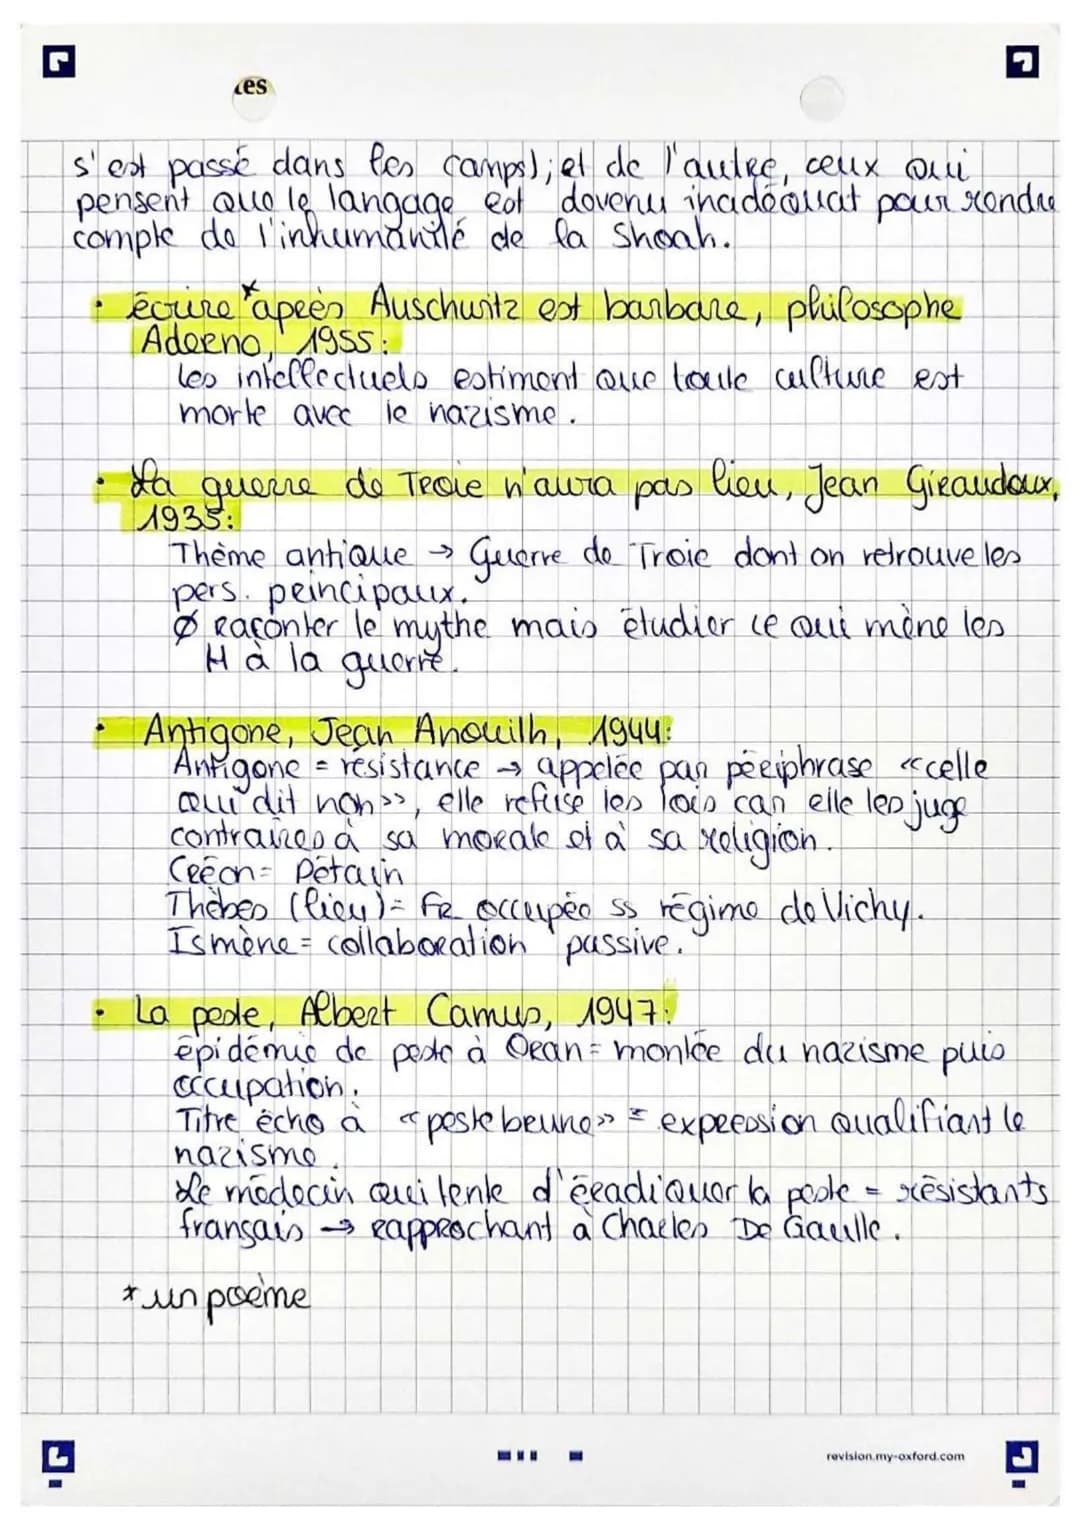 es
s'est passé dans les camps); et de l'autre, ceux qui
pensent que le langage est devenu inadéquat pour rendre
compte de l'inhumanité de la Shoah.
• écrire * après Auschwitz est barbare, philosophe
Aderno, 1955 :
Les intellectuels estiment que toute culture est
morte avec le nazisme.
• La guerre de Troie n'aura pas lieu, Jean Giraudoux,
1935 :
Thème antique → Guerre de Troie dont on retrouve les
pers. principaux.
Ø Raconter le mythe mais étudier ce qui mène les
H à la guerre.
• Antigone, Jean Anouilh, 1944 :
Antigone = résistance → appelée par périphrase «celle
qui dit non», elle refuse les lois car elle les juge
contraires à sa morale et à sa religion.
Créon = Pétain
Thèbes (lieu) = FR occupée ss régime de Vichy.
Ismène = collaboration passive.
• La peste, Albert Camus, 1947 :
épidémie de peste à Oran = montée du nazisme puis
occupation.
Titre écho à «peste brune» = expression qualifiant le
nazisme.
Le médecin qui tente d'éradiquer la peste = résistants
français → rapprochant à Charles De Gaulle.
* un poème
revision.my-oxford.com